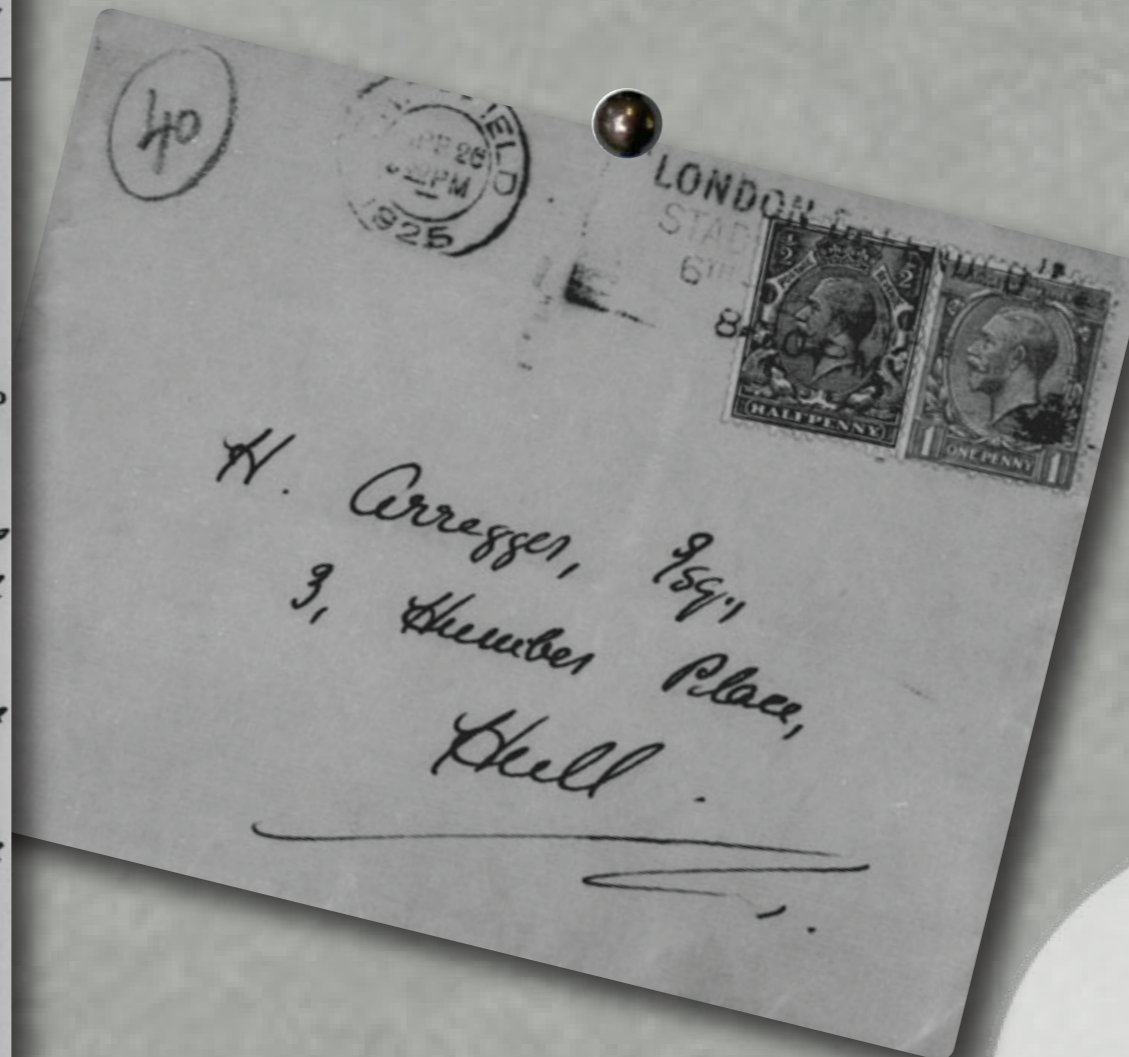 40
ELD
26
PM
1925
LONDON
STAD
6TH
8
½ ½
HALFPENNY
1 ONE PENNY 1
H. Arregger, Esq.,
3, Humber Place,
Hull.